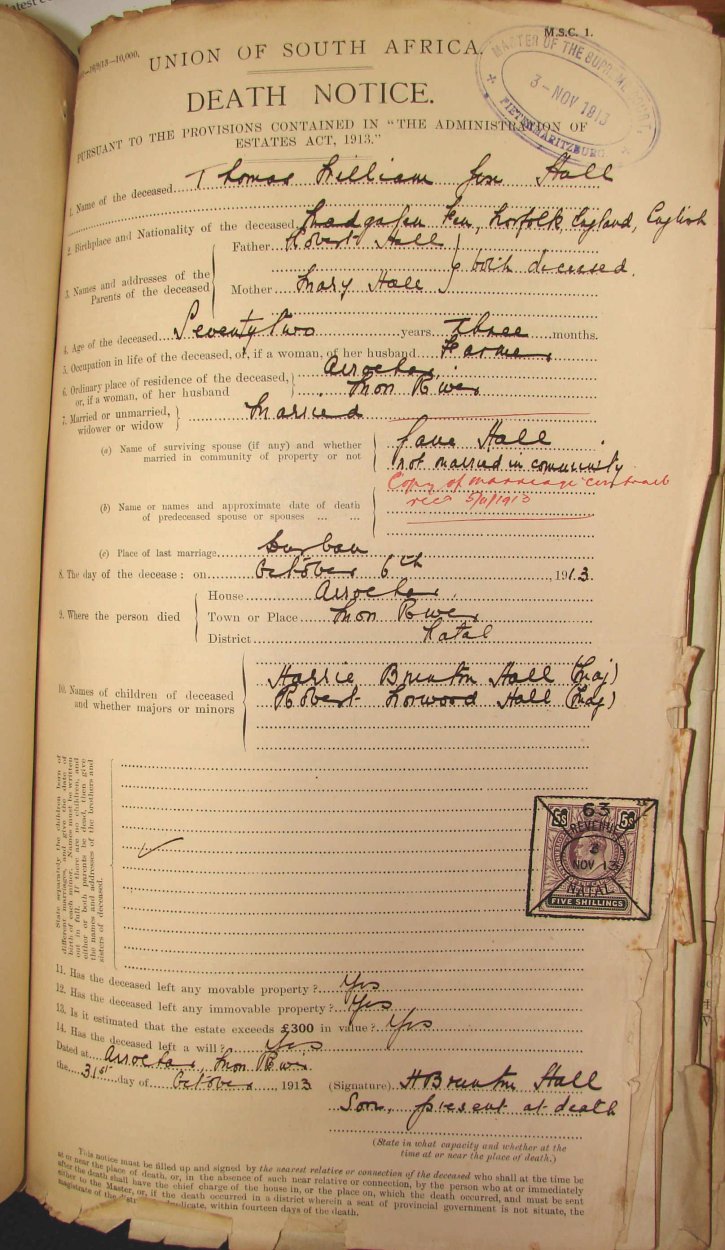 M.S.C. 1.
—169/13—10,000.
UNION OF SOUTH AFRICA.
MASTER OF THE SUPREME COURT
3 - NOV 1913
PIETERMARITZBURG
DEATH NOTICE.
PURSUANT TO THE PROVISIONS CONTAINED IN "THE ADMINISTRATION OF
ESTATES ACT, 1913."
1. Name of the deceased Thomas William Hall
2. Birthplace and Nationality of the deceased Fen, Norfolk England, English
3. Names and addresses of the Parents of the deceased
Father Robert Hall
both deceased.
Mother Mary Hall
4. Age of the deceased Seventy two years Three months.
5. Occupation in life of the deceased, or, if a woman, of her husband Farmer
6. Ordinary place of residence of the deceased, or, if a woman, of her husband
Arrochar,
Mooi River
7. Married or unmarried, widower or widow Married
(a) Name of surviving spouse (if any) and whether married in community of property or not
Jane Hall
not married in community
Copy of marriage contract
rec'd 5/11/1913
(b) Name or names and approximate date of death of predeceased spouse or spouses ... ...
(c) Place of last marriage Durban
8. The day of the decease: on October 6th, 1913.
9. Where the person died
House Arrochar,
Town or Place Mooi River
District Natal
10. Names of children of deceased and whether majors or minors
Harrie Brunton Hall (Maj)
Robert Norwood Hall (Maj)
State separately the children born of
different marriages, and give the date of
birth of each minor. Names must be written
out in full. If there are no children, and
either or both parents be dead, then give
the names and addresses of the brothers and
sisters of deceased.
63
5s REVENUE 5s
3
NOV 13
NATAL
FIVE SHILLINGS
11. Has the deceased left any movable property? Yes
12. Has the deceased left any immovable property? Yes
13. Is it estimated that the estate exceeds £300 in value? Yes
14. Has the deceased left a will? Yes
Dated at Arrochar, Mooi River
the 31st day of October, 1913
(Signature) H Brunton Hall
Son, present at death
(State in what capacity and whether at the
time at or near the place of death.)
This notice must be filled up and signed by the nearest relative or connection of the deceased who shall at the time be
at or near the place of death, or, in the absence of such near relative or connection, by the person who at or immediately
after the death shall have the chief charge of the house in, or the place on, which the death occurred, and must be sent
either to the Master, or, if the death occurred in a district wherein a seat of provincial government is not situate, the
magistrate of the district indicate, within fourteen days of the death.